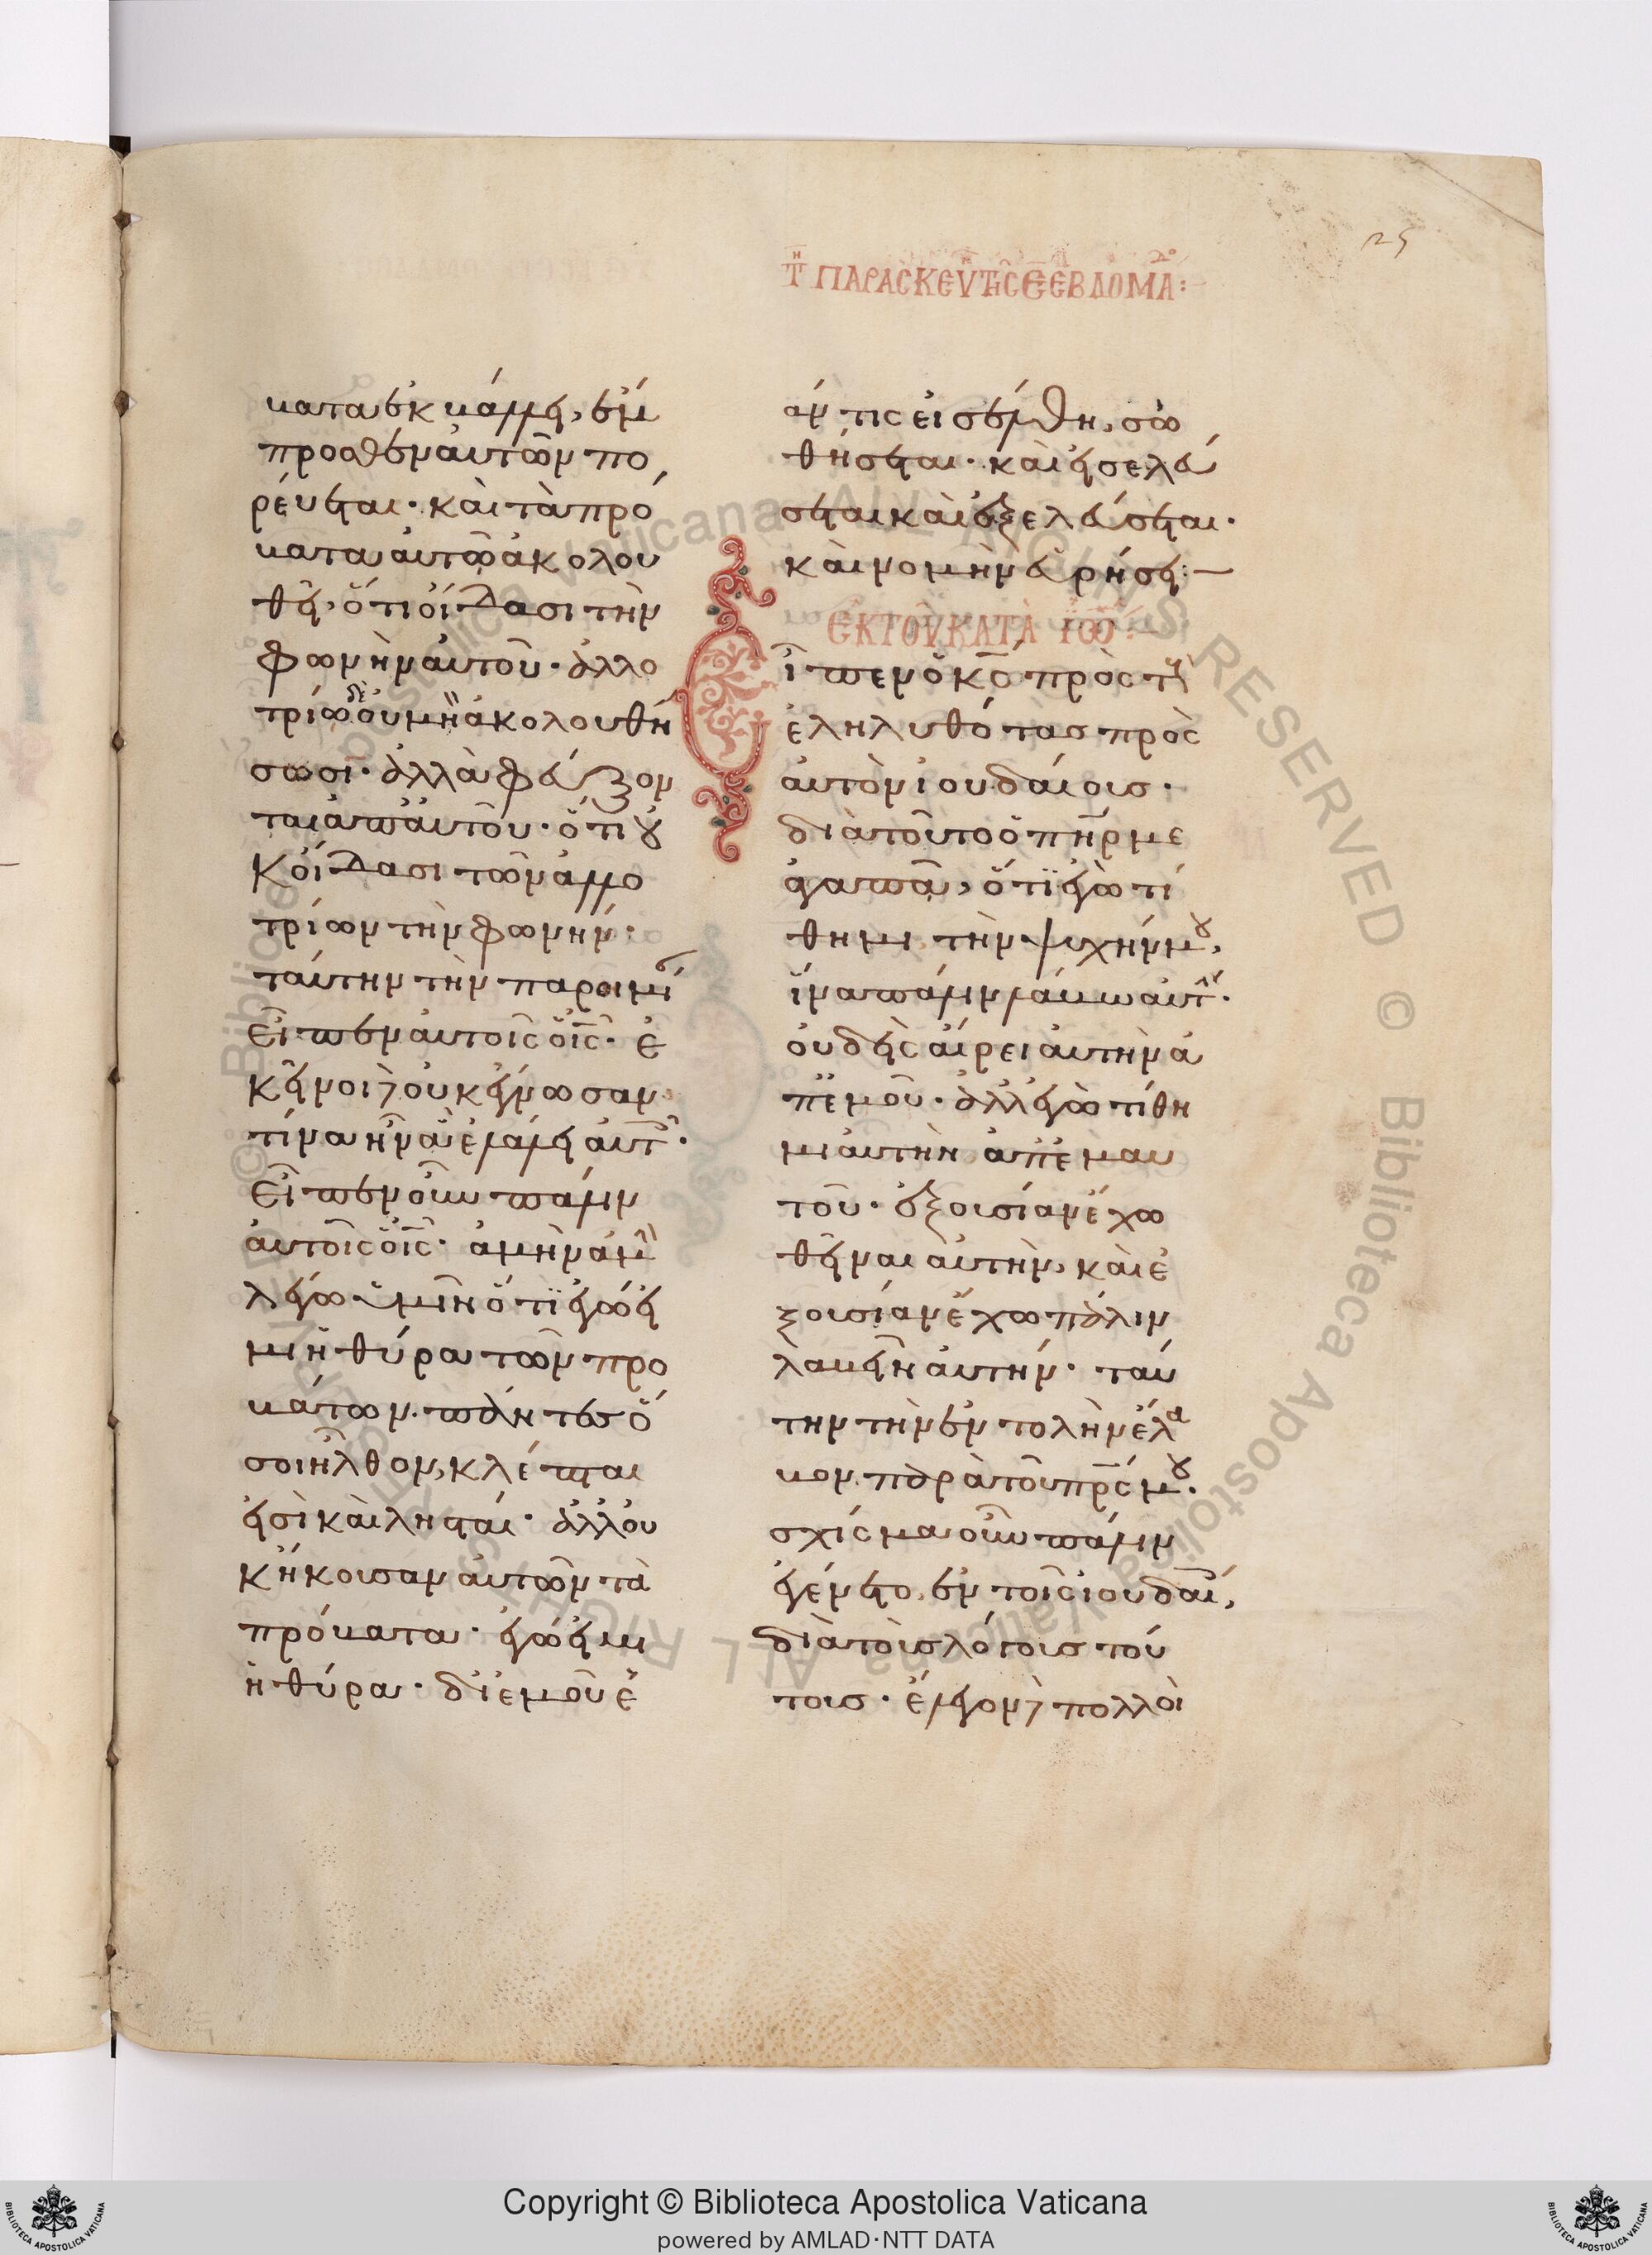 τῇ παρασκευ τῆς ε εβδομα:
125
βατα ἐκβάλλει, ἔμ
προσθεν αὐτῶν πο
ρεύεται· καὶ τὰ πρό
βατα αὐτῶ ἀκολου
θεῖ, ὅτι οἴδασι τὴν
φωνὴν αὐτοῦ· ἀλλο
τρίω δὲ οὐ μὴ ἀκολουθή
σωσι· ἀλλὰ φεύξον
ται ἀπ' αὐτοῦ· ὅτι οὐ
κ οἴδασι τῶν ἀλλο
τρίων τὴν φωνήν·
ταύτην τὴν παροιμί
εἶπεν αὐτοῖς ὁ ι̅ς̅· ἐ
κεῖνοι δὲ οὐκ ἔγνωσαν
τίνα ἦν ἃ ἐλάλει αὐτ·
εἶπεν οὖν πάλιν
αὐτοῖς ὁ ι̅ς̅· ἀμὴν ἀμὴν
λέγω ὑμῖν ὅτι ἐγώ εἰ
μι ἡ θύρα τῶν προ
βάτων· πάντες ὅ
σοι ἦλθον, κλέπται
εἰσὶ καὶ λησταί· ἀλλ' οὐ
κ ἤκουσαν αὐτῶν τὰ
πρόβατα· ἐγώ εἰμι
ἡ θύρα· δι' ἐμοῦ ἐ
άν τις εἰσέλθη, σω
θήσεται· καὶ εἰσελεύ
σεται καὶ ἐξελεύσεται·
καὶ νομὴν εὑρήσει:—
ἐκ τοῦ κατὰ ἰω:—
Εἶπεν ὁ κ̅ς̅ πρὸς τοὺς
ἐληλυθότας πρὸς
αὐτὸν ἰουδαίους·
διὰ τοῦτο ὁ π̅η̅ρ̅ με
ἀγαπᾶ, ὅτι ἐγὼ τί
θημι τὴν ψυχήν μου,
ἵνα πάλιν λάβω αὐτ·
οὐδεὶς αἴρει αὐτὴν ἀ
π' ἐμοῦ· ἀλλ' ἐγὼ τίθη
μι αὐτὴν ἀπ' ἐμαυ
τοῦ· ἐξουσίαν ἔχω
θεῖναι αὐτὴν, καὶ ἐ
ξουσίαν ἔχω πάλιν
λαβεῖν αὐτήν· ταύ
την τὴν ἐντολὴν ἔλα
βον παρὰ τοῦ π̅ρ̅ς̅ μου·
σχίσμα οὖν πάλιν
ἐγένετο ἐν τοῖς ἰουδαί,
διὰ τοὺς λόγους τού
τους· ἔλεγον δὲ πολλοὶ
Copyright © Biblioteca Apostolica Vaticana
powered by AMLAD·NTT DATA